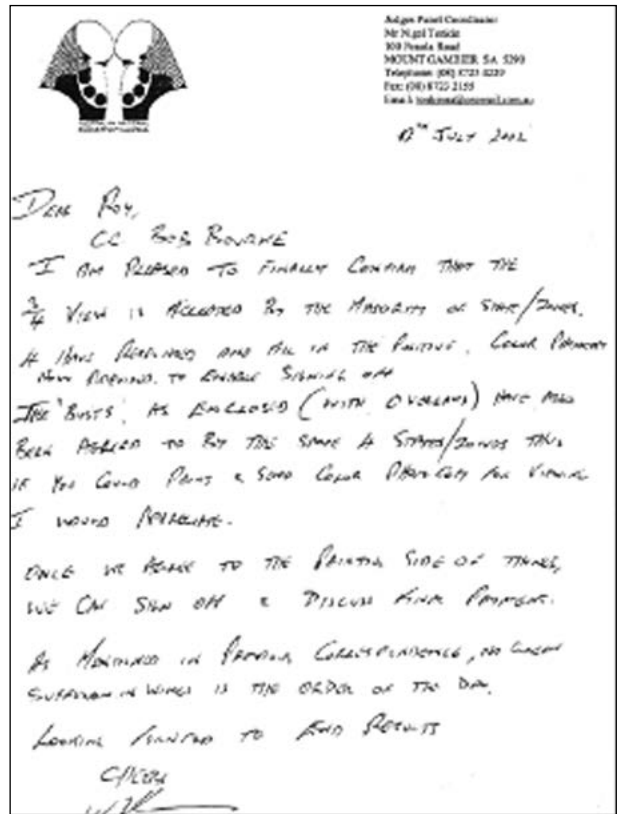 Judges Panel Coordinator
Mr Nigel
100 Penola Road
MOUNT GAMBIER SA 5290
Telephone: (08) 8725
Fax: (08) 8723 2155
Email:
JULY 2002
DEAR ROY,
CC BOB BOURNE
I AM PLEASED TO FINALLY CONFIRM THAT THE
3/4 VIEW IS ACCEPTED BY THE MAJORITY OF STATE/ZONES.
4 HAVE RESPONDED AND ALL IN THE POSITIVE. COLOR
NOW REQUIRED. TO ENABLE SIGNING OFF
THE 'BUSTS', AS ENCLOSED (WITH OVERLAYS) HAVE ALSO
BEEN AGREED TO BY THE SAME 4 STATES/ZONES THUS
IF YOU COULD PRINT & SEND COLOR PHOTOCOPY FOR VIEWING
I WOULD APPRECIATE.
ONCE WE AGREE TO THE PRINTING SIDE OF THINGS,
WE CAN SIGN OFF & DISCUSS FINAL PAYMENT.
AS MENTIONED IN PREVIOUS CORRESPONDENCE, NO GREEN
SUFFUSION IN WINGS IS THE ORDER OF THE DAY.
LOOKING FORWARD TO END RESULTS
CHEERS